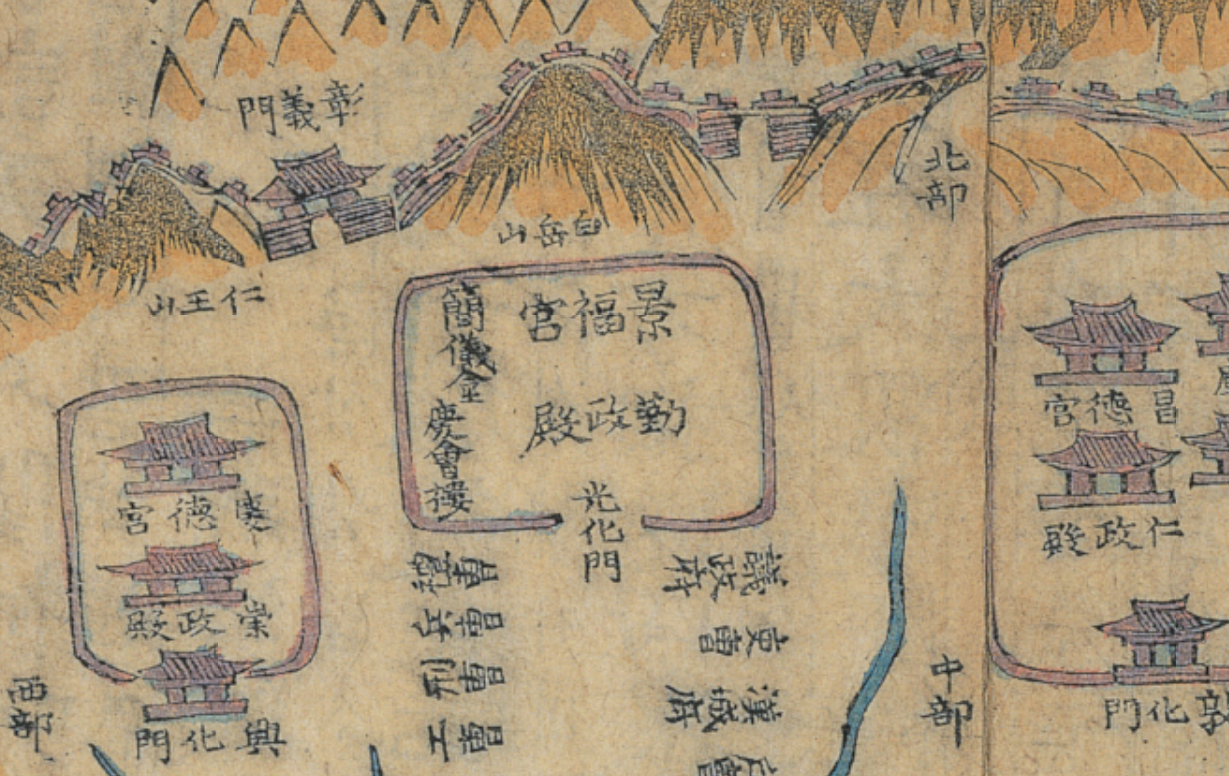 彰義門
北部
白岳山
仁王山
景福宮
簡儀
慶會樓
勤政殿
光化門
昌德宮
仁政殿
化門
慶德宮
崇政殿
興化門
議政府
吏曹
漢城府
禮曹
兵曹
刑曹
工曹
中部
西部